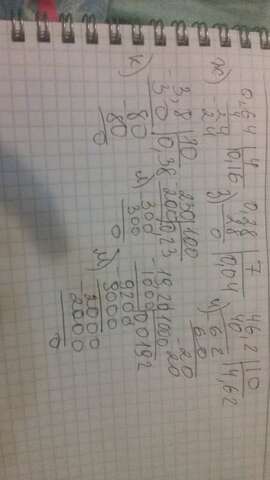 ж) 0,64 | 4
4 | 0,16
24
-24
з) 0,28 | 7
-28 | 0,04
0
и) 46,2 | 10
40 | 4,62
-62
60
-20
20
к) 3,8 | 10
-30 | 0,38
-80
80
0
л) 230 | 100
200 | 0,23
-300
300
0
м)
1000 | 0,0192
9200
9000
-2000
2000
0